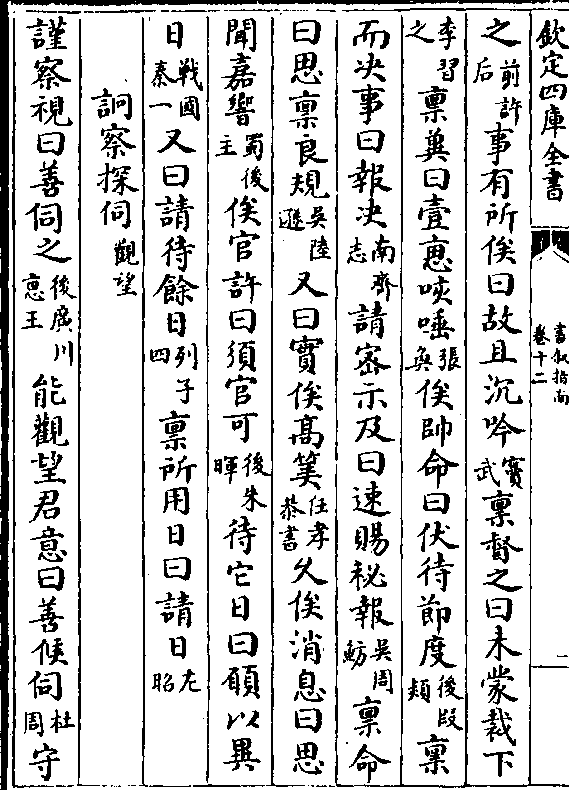 欽定四庫全書
書叙指南
卷十二
二
之前許后事有所俟曰故且沉吟竇武禀督之曰未蒙裁下
李習之禀奠曰壹恵咳唾張奐俟帥命曰伏待節度後段熲禀
而决事曰報决南齊志請宻示及曰速賜秘報吳周魴禀命
曰思禀良規吳陸遜又曰實俟髙筭任孝恭書乆俟消息曰思
聞嘉響蜀後主俟官許曰須官可後朱暉待它日曰願以異
日戰國秦一又曰請待餘日列子四禀所用日曰請日左昭
詗察探伺觀望
謹察視曰善伺之後廣川恵王能觀望君意曰善候伺杜周守